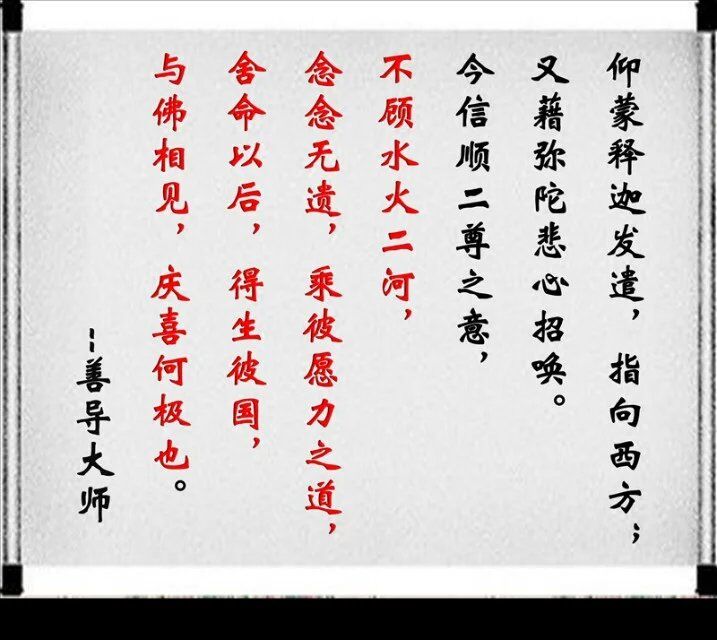 仰蒙释迦发遣，指向西方；
又藉弥陀悲心招唤。
今信顺二尊之意，
不顾水火二河，
念念无遗，乘彼愿力之道，
舍命以后，得生彼国，
与佛相见，庆喜何极也。
--善导大师